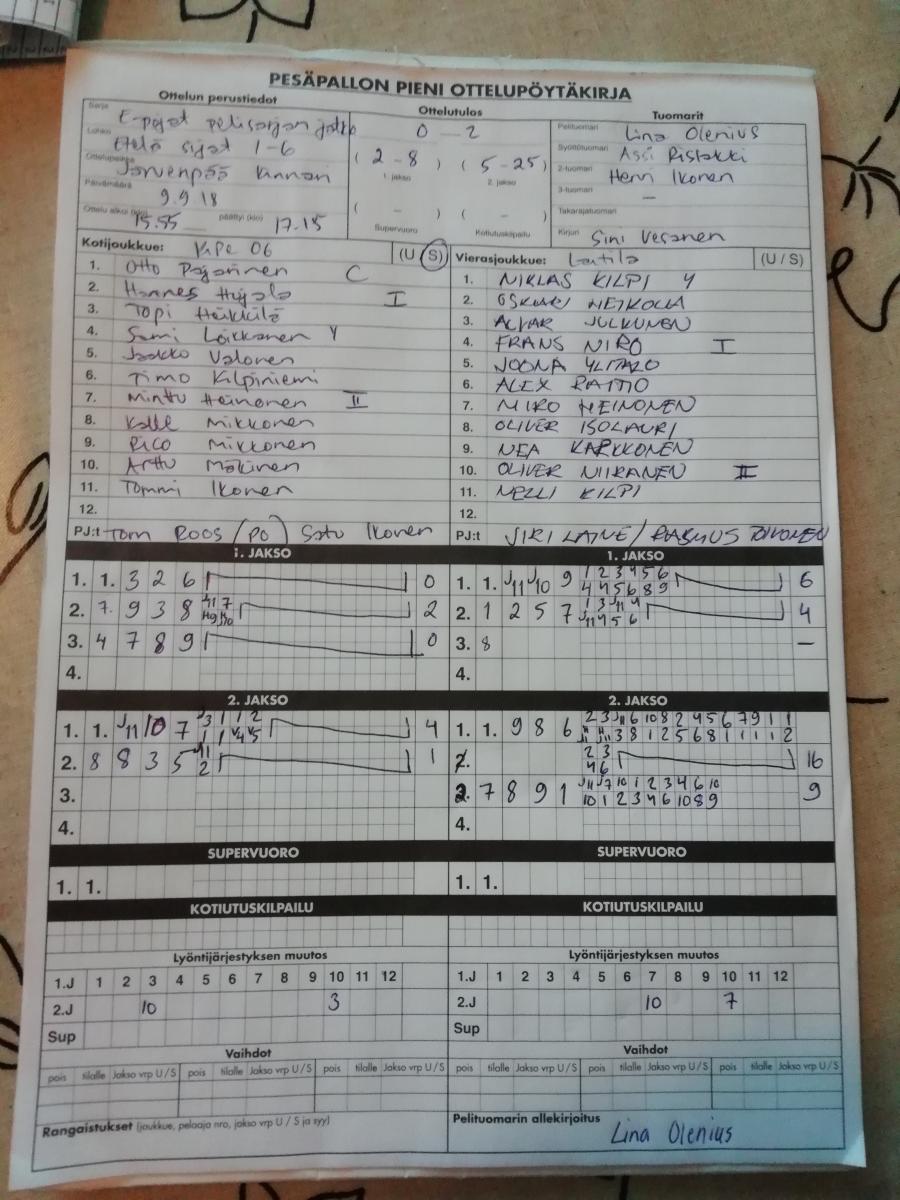 PESÄPALLON PIENI OTTELUPÖYTÄKIRJA
Ottelun perustiedot
Ottelutulos
Tuomarit
Sarja E-pojat pelisarjan jatko
Lohko Etelä sijat 1-6
Ottelupaikka Järvenpää Kinnari
Päivämäärä 9.9.18
Ottelu alkoi (klo) 15.55 päättyi (klo) 17.15
0 - 2
( 2 - 8 ) ( 5 - 25 )
1. jakso 2. jakso
( - ) ( - )
Supervuoro Kotiutuskilpailu
Pelituomari Lina Olenius
Syöttötuomari Assi
2-tuomari Henri Ikonen
3-tuomari —
Takarajatuomari
Kirjuri Sini Vesanen
Kotijoukkue: KePe 06 (U / S)
1. Otto Pajarinen C
2. Hannes I
3. Topi Heikkilä
4. Sami Loikkanen Y
5. Jaakko Valonen
6. Timo Kilpiniemi
7. Minttu Heinonen II
8. Kalle Mikkonen
9. Rico Mikkonen
10. Arttu Mäkinen
11. Tommi Ikonen
12.
PJ:t Tom Roos (PO) Satu Ikonen
Vierasjoukkue: Laitila (U / S)
1. NIKLAS KILPI Y
2. OSKARI HEIKOLA
3. ALVAR JULKUNEN
4. FRANS NIRO I
5. JOONA YLITALO
6. ALEX RAITIO
7. MIRO HEINONEN
8. OLIVER ISOLAURI
9. NEA KARKKONEN
10. OLIVER NIIRANEN II
11. NELLI KILPI
12.
PJ:t SIRI LAINE / RASMUS TOIVONEN
1. JAKSO
1. 1. 3 2 6 0
2. 7. 9 3 8 2
3. 4 7 8 9 0
4.
1. JAKSO
1. 1. J11 J10 9 1 2 3 4 5 6 6
4 4 5 6 8 9
2. 1 2 5 7 1 3 J11 4 4
J11 4 5 6
3. 8 –
4.
2. JAKSO
1. 1. J11 10 7 J3 1 1 2 4
1 1 V4 V5
2. 8 8 3 5 J11 1
2
3.
4.
2. JAKSO
1. 1. 9 8 6 2 3 J11 6 10 8 2 4 5 6 7 9 1 1
3 8 1 2 5 6 8 1 1 1 1 2
2. 2 3 16
4 6
2. 7 8 9 1 J11 J7 10 1 2 3 4 6 10 9
10 1 2 3 4 6 10 8 9
4.
SUPERVUORO
1. 1.
SUPERVUORO
1. 1.
KOTIUTUSKILPAILU
KOTIUTUSKILPAILU
Lyöntijärjestyksen muutos
1.J 1 2 3 4 5 6 7 8 9 10 11 12
2.J 10 3
Sup
Lyöntijärjestyksen muutos
1.J 1 2 3 4 5 6 7 8 9 10 11 12
2.J 10 7
Sup
Vaihdot
pois tilalle Jakso vrp U / S pois tilalle Jakso vrp U / S pois tilalle Jakso vrp U / S
Vaihdot
pois tilalle Jakso vrp U / S pois tilalle Jakso vrp U / S pois tilalle Jakso vrp U / S
Rangaistukset (joukkue, pelaaja nro, jakso vrp U / S ja syy)
Pelituomarin allekirjoitus
Lina Olenius